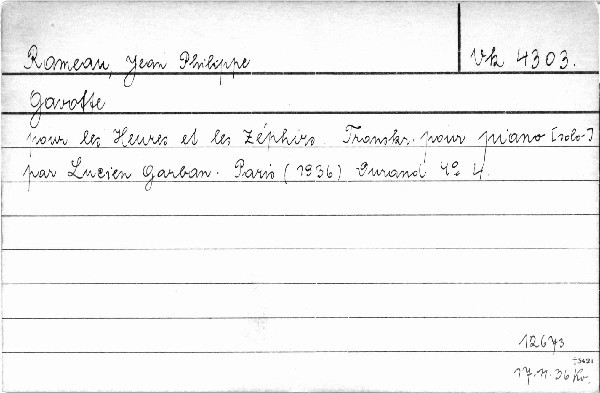 Rameau, Jean Philippe
Vk 4303.
Gavotte
pour les Heures et les Zéphirs Transkr. pour piano [solo]
par Lucien Garban. Paris (1936) Durand 4° 4.
12673
17.11.36 Kv.